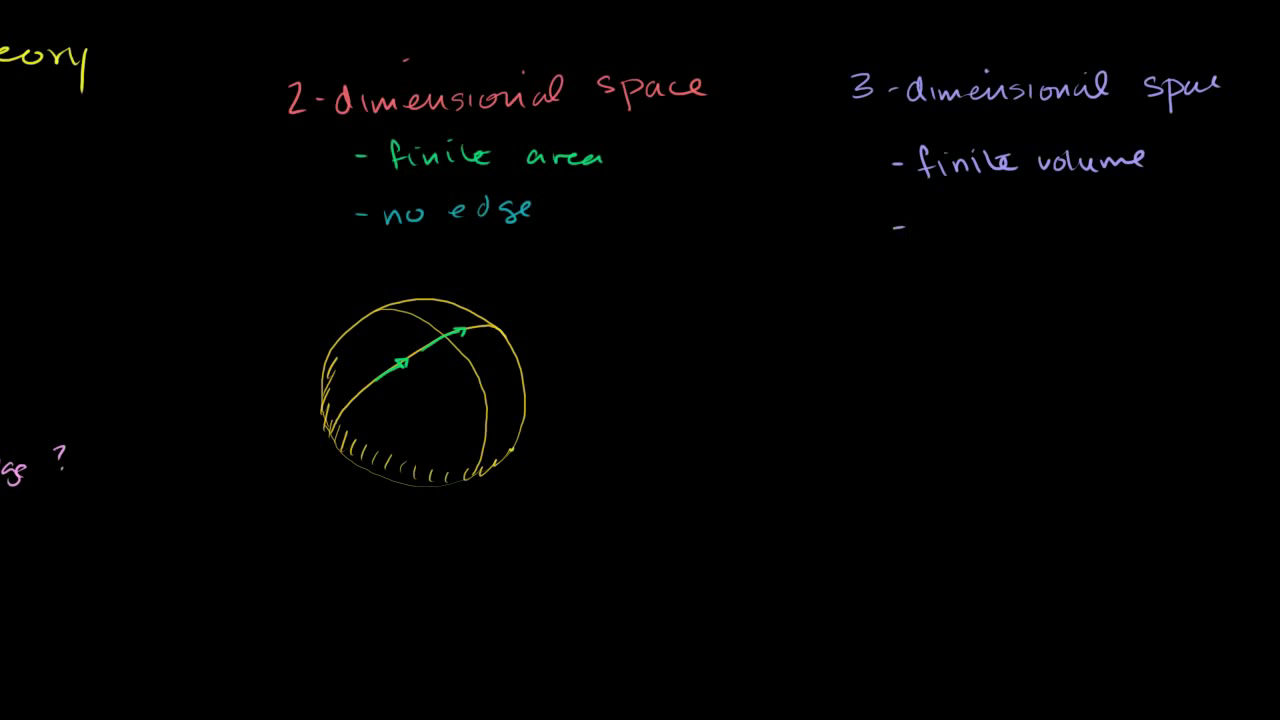 eory
2-dimensional space
- finite area
- no edge
3-dimensional space
- finite volume
-
ge ?